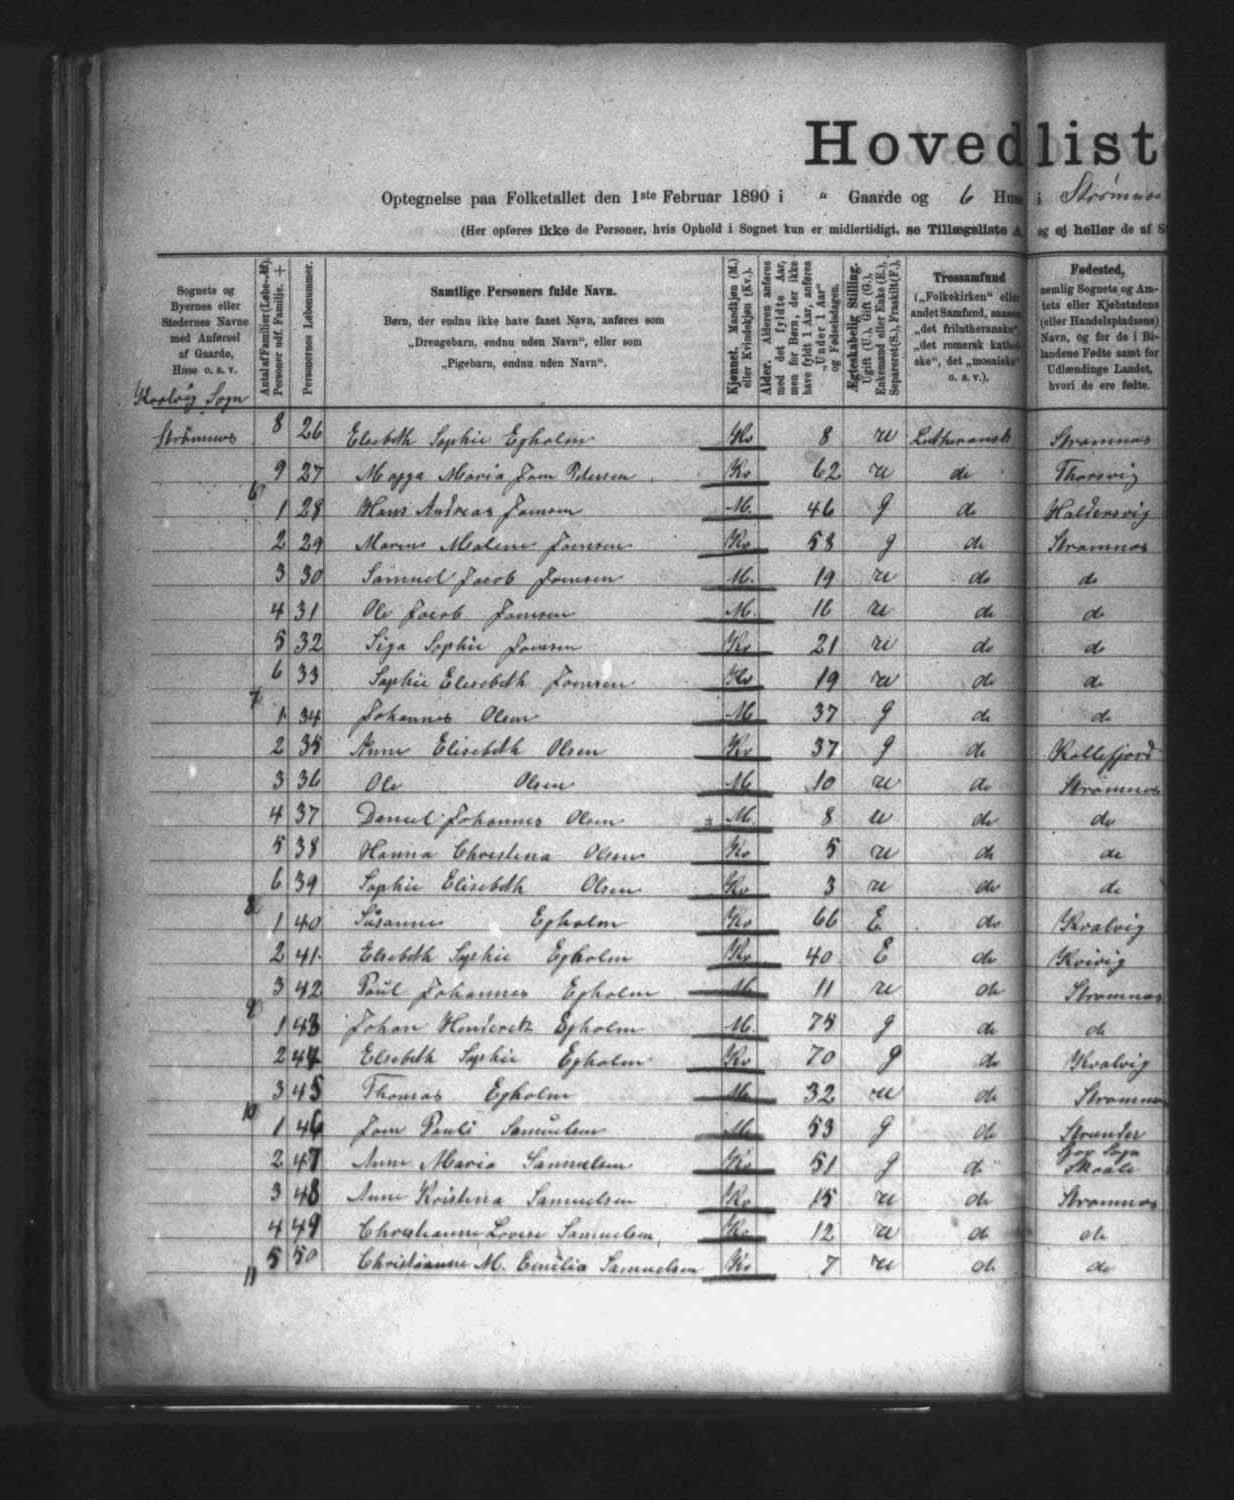 Hovedlist
Optegnelse paa Folketallet den 1ste Februar 1890 i " Gaarde og 6 Huse i Strømnæs
(Her opføres ikke de Personer, hvis Ophold i Sognet kun er midlertidigt, se Tillægsliste A, og ej heller de af S
Sognets og Byernes eller Stedernes Navne med Anførsel af Gaarde, Huse o. s. v.
Antal af Familier (Løbe-№). Personer udf. Familie. +
Personernes Løbenummer.
Samtlige Personers fulde Navn.
Børn, der endnu ikke have faaet Navn, anføres som „Drengebarn, endnu uden Navn“, eller som „Pigebarn, endnu uden Navn“.
Kjønnet. Mandkjøn (M.) eller Kvindekjøn (Kv.).
Alder. Alderen anføres med det fyldte Aar, men for Børn, der ikke have fyldt 1 Aar, anføres „Under 1 Aar“ og Fødselsdagen.
Ægteskabelig Stilling. Ugift (U.), Gift (G.), Enkemand eller Enke (E.), Separeret (S.), Fraskilt (F.).
Trossamfund („Folkekirken“ eller andet Samfund, saasom „det frilutheranske“, „det romersk katholske“, det „mosaiske“ o. s. v.).
Fødested, nemlig Sognets og Amtets eller Kjøbstadens (eller Handelspladsens) Navn, og for de i Bilandene Fødte samt for Udlændinge Landet, hvori de ere fødte.
Kvalvig Sogn
Strømnæs 8 26 Elsebeth Sophie Egholm Kv 8 u Lutheransk Strømnæs
9 27 Magga Maria Joen Petersen Kv 62 u do Thorsvig
6 1 28 Hans Andreas Joensen M. 46 g do Haldersvig
2 29 Maren Malene Joensen Kv 58 g do Strømnæs
3 30 Samuel Jacob Joensen M. 19 u do do
4 31 Ole Jacob Joensen M. 16 u do do
5 32 Siga Sophie Joensen Kv 21 u do do
6 33 Sophie Elisebeth Joensen Kv 19 u do do
7 1 34 Johannes Olsen M 37 g do do
2 35 Anne Elisebeth Olsen Kv 37 g do Kollefjord
3 36 Ole Olsen M 10 u do Strømnæs
4 37 Daniel Johannes Olsen M. 8 u do do
5 38 Hanna Christina Olsen Kv 5 u do do
6 39 Sophie Elisebeth Olsen Kv 3 u do do
8 1 40 Susanne Egholm Kv 66 E do Kvalvig
2 41 Elsebeth Sophie Egholm Kv 40 E do Kvivig
3 42 Paul Johannes Egholm M 11 u do Strømnæs
9 1 43 Johan Henderik Egholm M. 75 g do do
2 44 Elsebeth Sophie Egholm Kv 70 g do Kvalvig
3 45 Thomas Egholm M 32 u do Strømnæs
10 1 46 Joen Pauli Samuelsen M 53 g do Strænder
2 47 Anne Maria Samuelsen Kv 51 g do Sogn Skaale
3 48 Anne Kristina Samuelsen Kv 15 u do Strømnæs
4 49 Christianne Lovise Samuelsen Kv 12 u do do
5 50 Christianne M. Emilia Samuelsen Kv 7 u do do
11